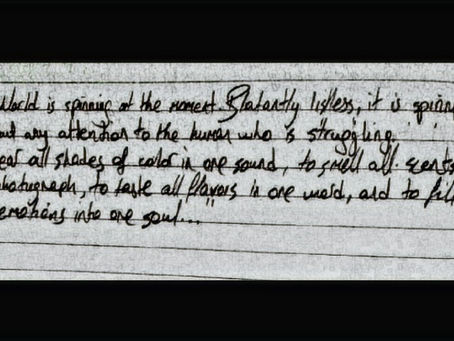 World is spinning at the moment. Blatantly listless, it is spinn
out any attention to the human who is struggling
ear all shades of color in one sound, to smell all scents
photograph, to taste all flavors in one word, and to fill
emotions into one soul..."